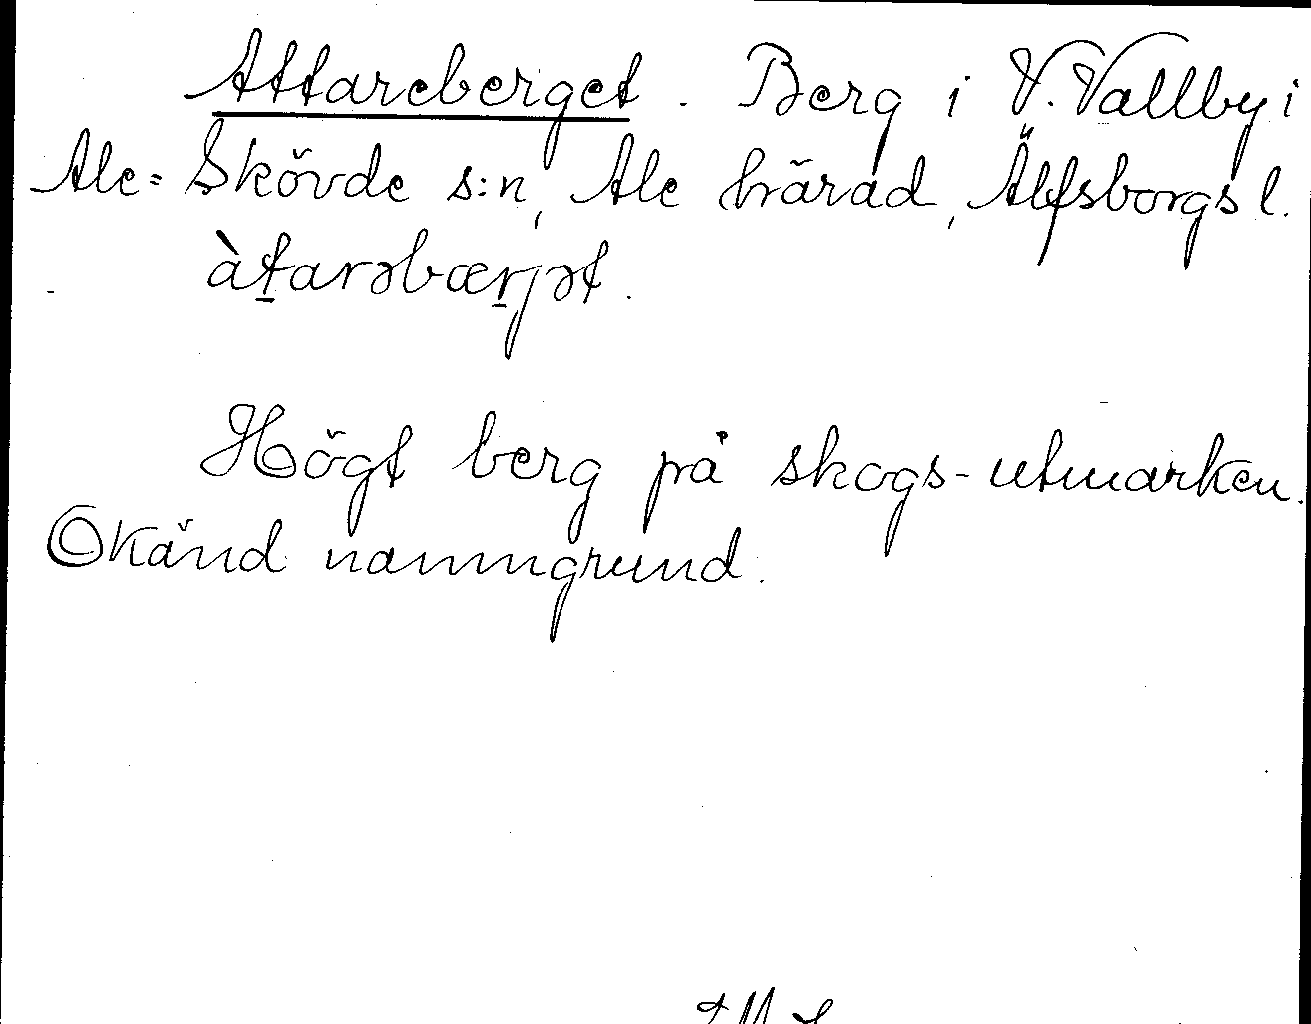 Attareberget. Berg i V. Vallby i
Ale-Skövde s:n, Ale härad, Älfsborgs l.
àt̠arəbær̠jət.
Högt berg på skogs-utmarken.
Okänd namngrund.